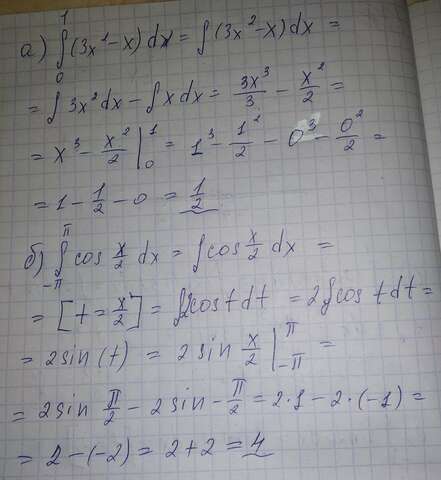 а) ∫₀¹ (3x² - x) dx = ∫ (3x² - x) dx =
= ∫ 3x² dx - ∫ x dx = 3x³/3 - x²/2 =
= x³ - x²/2 |₀¹ = 1³ - 1²/2 - 0³ - 0²/2 =
= 1 - 1/2 - 0 = 1/2
б) ∫_{-π}^{π} cos x/2 dx = ∫ cos x/2 dx =
= [t = x/2] = ∫2cos t dt = 2∫ cos t dt =
= 2 sin (t) = 2 sin x/2 |_{-π}^{π} =
= 2 sin π/2 - 2 sin - π/2 = 2·1 - 2·(-1) =
= 2 - (-2) = 2 + 2 = 4